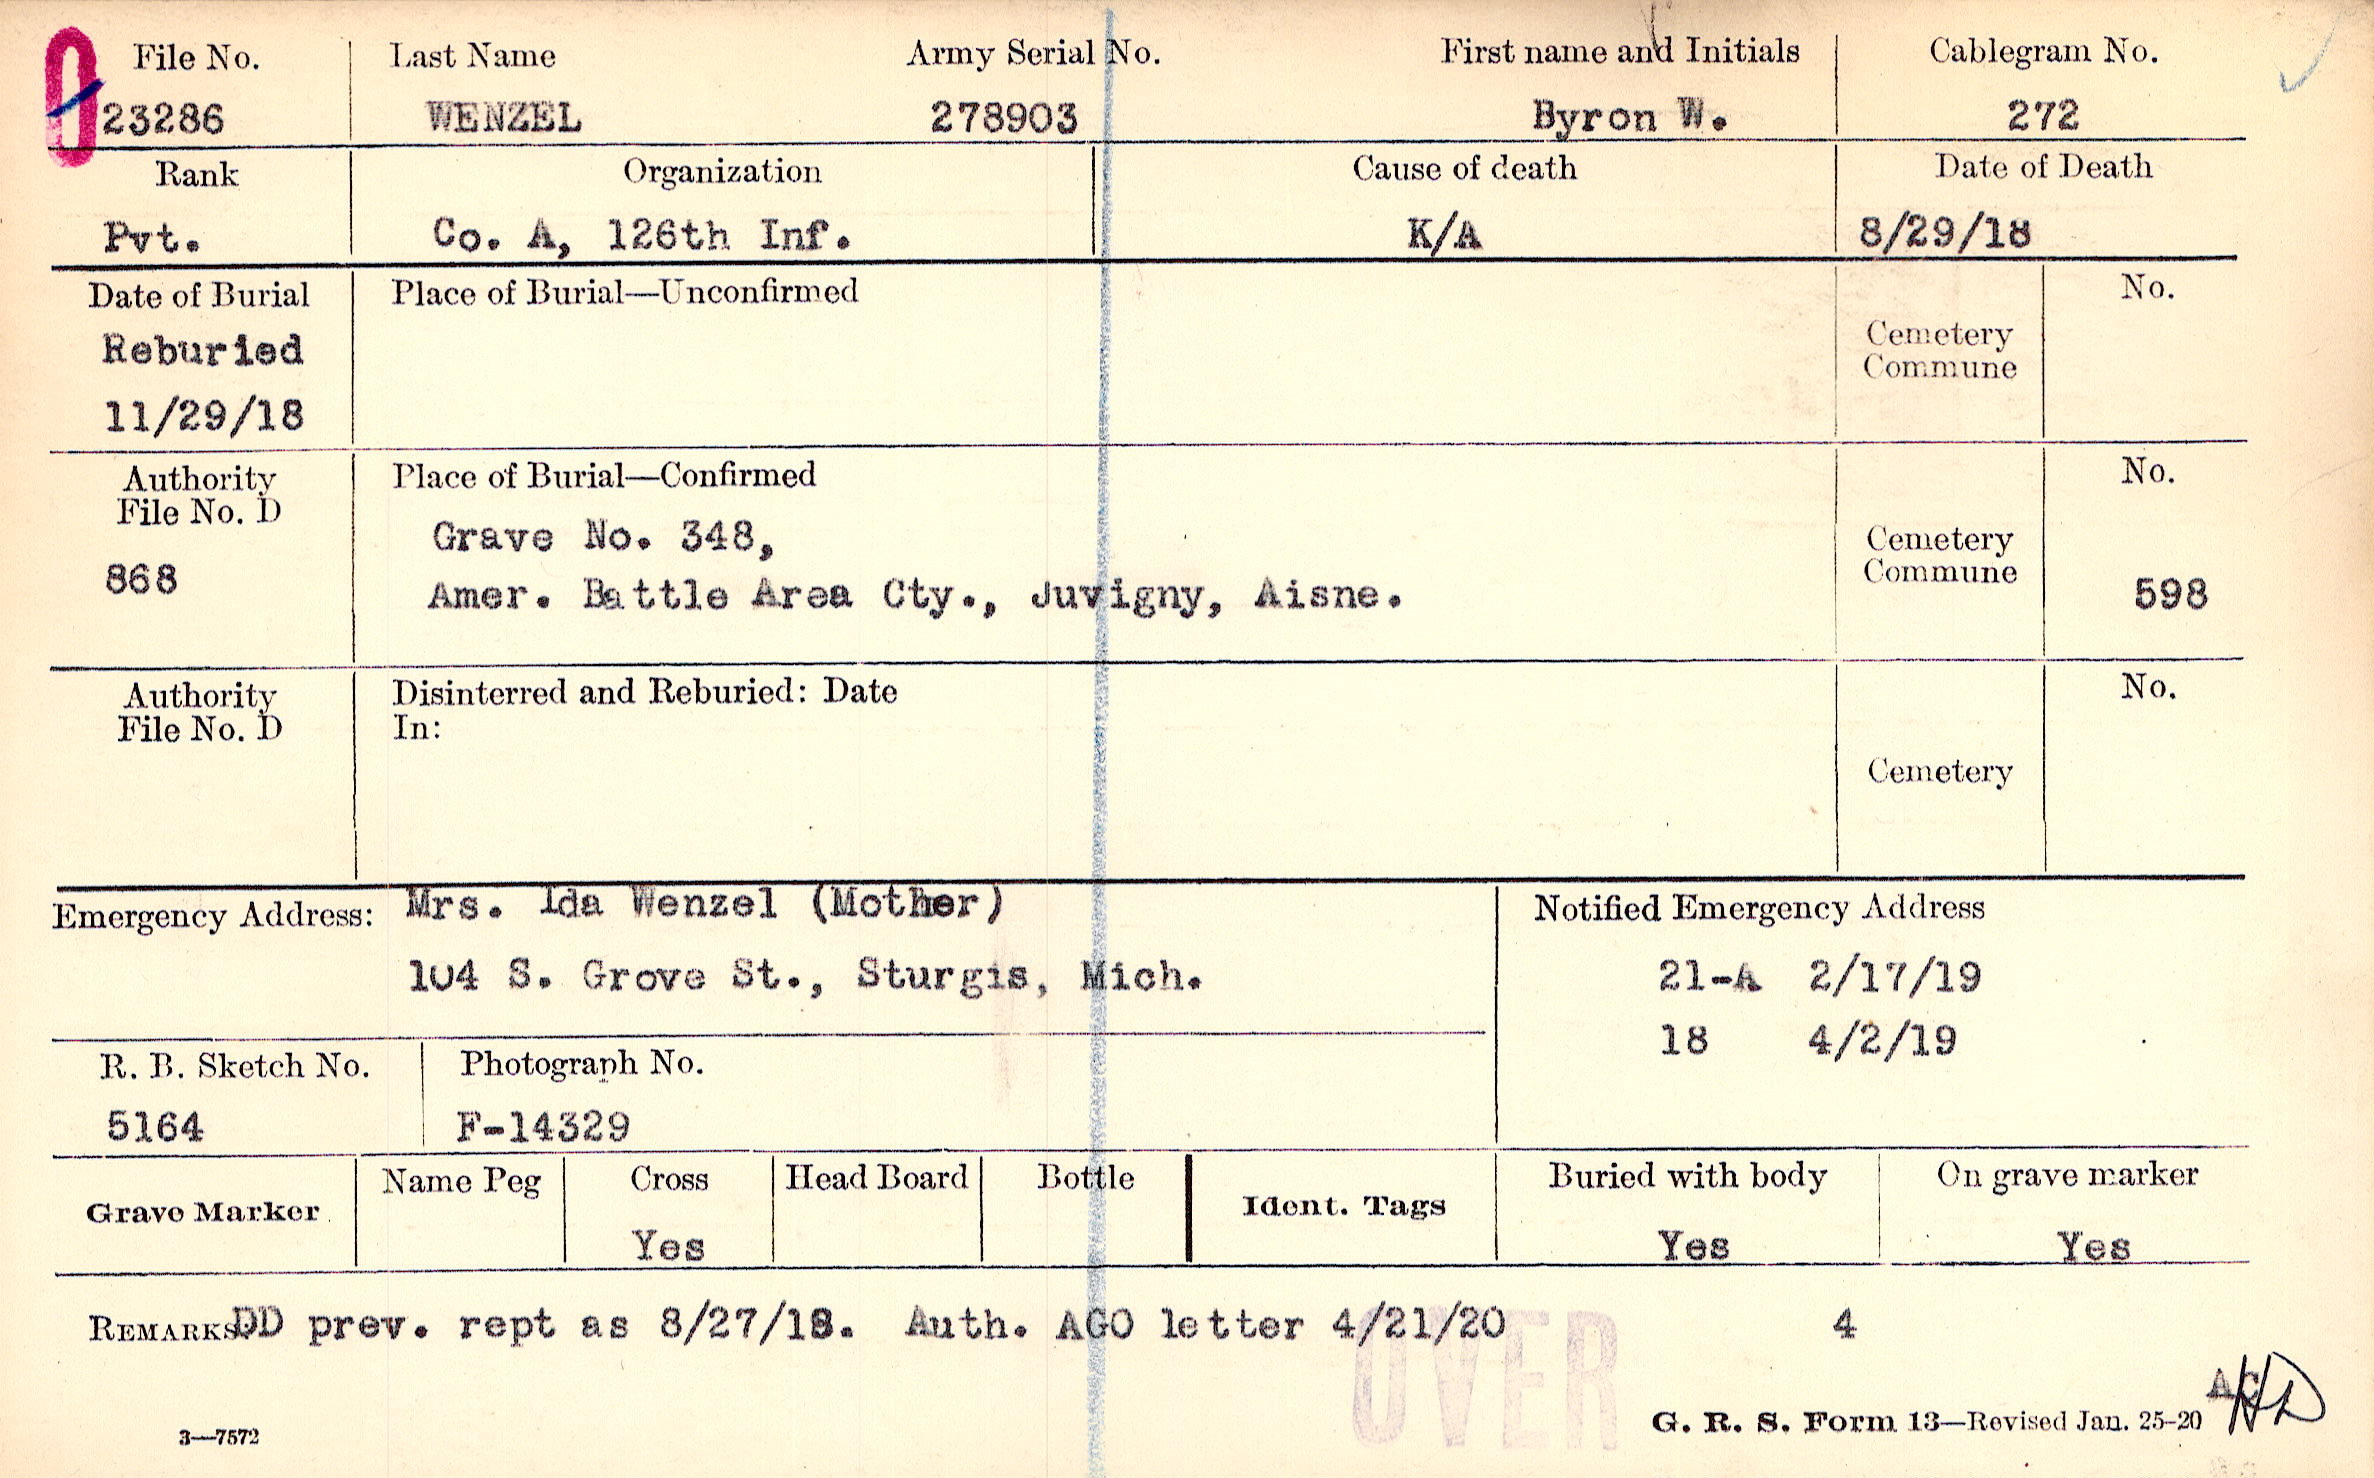 0
File No. Last Name Army Serial No. First name and Initials Cablegram No.
23286 WENZEL 278903 Byron W. 272
Rank Organization Cause of death Date of Death
Pvt. Co. A, 126th Inf. K/A 8/29/18
Date of Burial Place of Burial—Unconfirmed No.
Reburied Cemetery
Commune
11/29/18
Authority Place of Burial—Confirmed No.
File No. D
Grave No. 348, Cemetery
868 Commune
Amer. Battle Area Cty., Juvigny, Aisne. 598
Authority Disinterred and Reburied: Date No.
File No. D In:
Cemetery
Emergency Address: Mrs. Ida Wenzel (Mother) Notified Emergency Address
104 S. Grove St., Sturgis, Mich. 21-A 2/17/19
18 4/2/19
R. B. Sketch No. Photograph No.
5164 F-14329
Grave Marker Name Peg Cross Head Board Bottle Ident. Tags Buried with body On grave marker
Yes Yes Yes
REMARKS DD prev. rept as 8/27/18. Auth. AGO letter 4/21/20 4
OVER
3—7572 G. R. S. Form 13—Revised Jan. 25-20